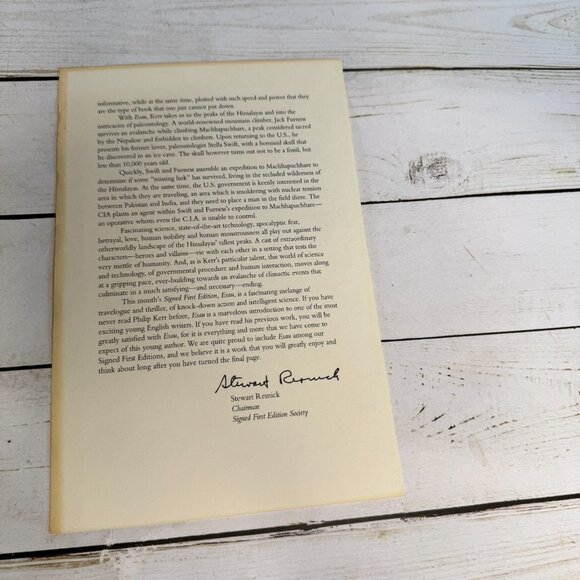 informative, while at the same time, plotted with such speed and power that they
are the type of book that one just cannot put down.
With Esau, Kerr takes us to the peaks of the Himalayas and into the
intricacies of paleontology. A world-renowned mountain climber, Jack Furness
survives an avalanche while climbing Machhapuchhare, a peak considered sacred
by the Nepalese and forbidden to climbers. Upon returning to the U.S., he
presents his former lover, paleontologist Stella Swift, with a hominid skull that
he discovered in an ice cave. The skull however turns out not to be a fossil, but
less than 10,000 years old.
Quickly, Swift and Furness assemble an expedition to Machhapuchhare to
determine if some "missing link" has survived, living in the secluded wilderness of
the Himalayas. At the same time, the U.S. government is keenly interested in the
area in which they are traveling, an area which is smoldering with nuclear tension
between Pakistan and India, and they need to place a man in the field there. The
CIA plants an agent within Swift and Furness's expedition to Machhapuchhare—
an operative whom even the C.I.A. is unable to control.
Fascinating science, state-of-the-art technology, apocalyptic fear,
betrayal, love, human nobility and human monstrousness all play out against the
otherworldly landscape of the Himalayas' tallest peaks. A cast of extraordinary
characters—heroes and villains—vie with each other in a setting that tests the
very mettle of humanity. And, as is Kerr's particular talent, this world of science
and technology, of governmental procedure and human interaction, moves along
at a gripping pace, ever-building towards an avalanche of climactic events that
culminate in a much satisfying—and necessary—ending.
This month's Signed First Edition, Esau, is a fascinating melange of
travelogue and thriller, of knock-down action and intelligent science. If you have
never read Philip Kerr before, Esau is a marvelous introduction to one of the most
exciting young English writers. If you have read his previous work, you will be
greatly satisfied with Esau, for it is everything and more that we have come to
expect of this young author. We are quite proud to include Esau among our
Signed First Editions, and we believe it is a work that you will greatly enjoy and
think about long after you have turned the final page.
Stewart Resnick
Stewart Resnick
Chairman
Signed First Edition Society